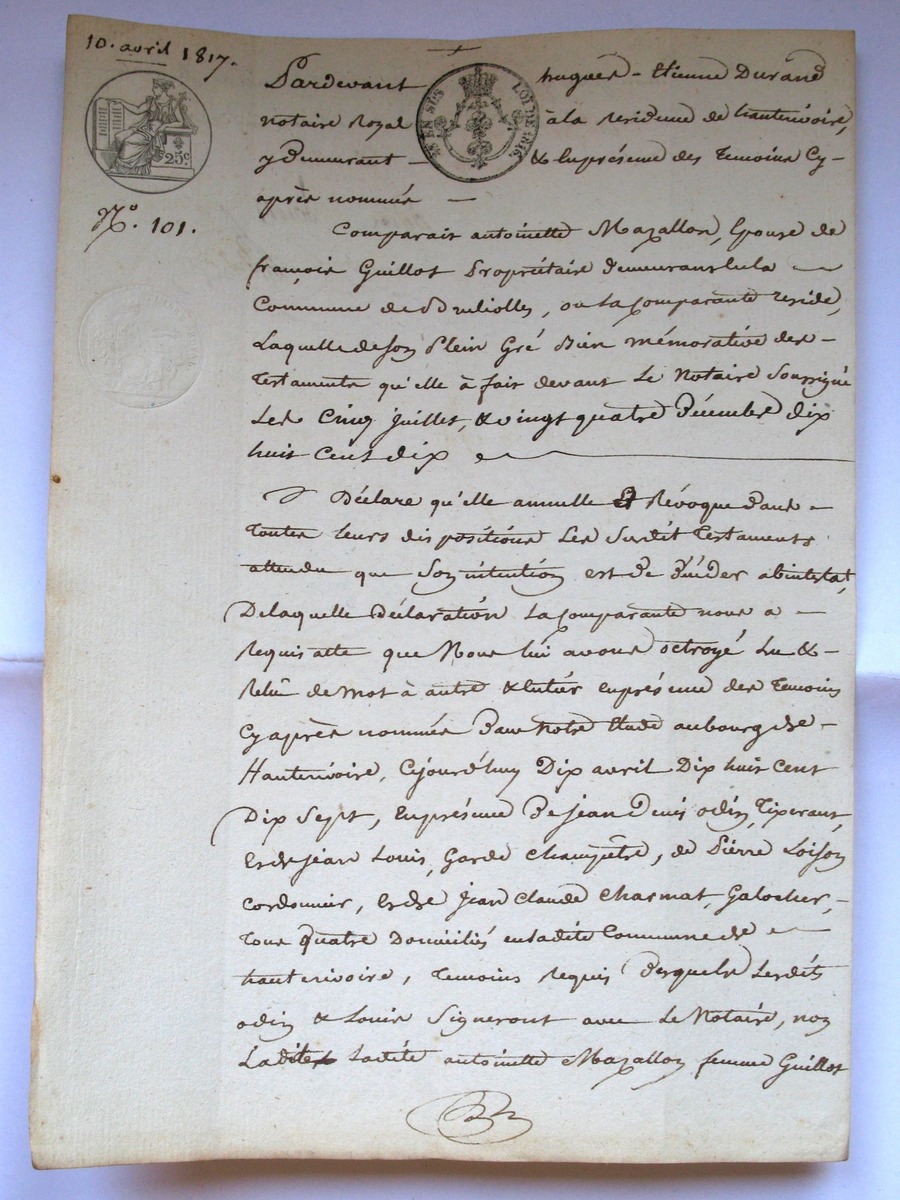 10. avril 1817.
25c.
EN SUS LOI DE 1816
No. 101.
Pardevant hugues-Etienne Durand
notaire Royal à la residence de hauterivoire,
y Demeurant & Enprésence des Temoins Cy-
après nommés
Comparait antoinette Mazallon, Epouse de
françois Guillot Propriétaire Demeurans en la
Commune de, ou la Comparante reside,
Laquelle de son Plein Gré Bien mémorative des
Testaments qu'elle à fait devant Le Notaire Soussigné
Les Cinq Juillet, & vingt quatre Décembre dix
huit Cent dix
Déclare qu'elle annulle Et Révoque Dans
Toutes leurs dispositions Les Susdit Testaments
attendu que Son intention est De Décider abintestat,
De laquelle Déclaration La Comparante nous a
Requis acte que Nous lui avons octroyé Lu &
Relu de Mot à autre & Entier enprésence des Temoins
Cy après nommés Dans Notre Etude au bourg de
Hauterivoire, Cejourd'huy Dix avril Dix huit Cent
Dix Sept, Enprésence De Jean Denis odin, Tixerant,
Jean Louis, Garde Champêtre, de Pierre Loison
Cordonnier, Jean Claude Charmat, Galocher,
Tous Quatre Domiciliés en ladite Commune de
hauterivoire, Temoins Requis Desquels Lesdits
odin & Louis Signeront avec Le Notaire, non
Ladite Ladite antoinette Mazallon femme Guillot